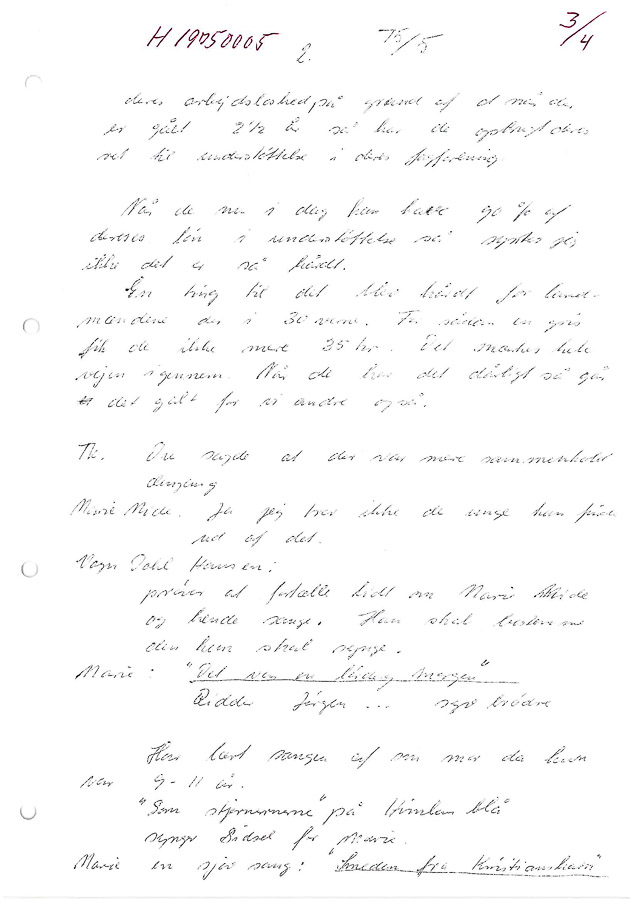 H 19750005
2.
75/5
3/4
deres arbejdsløshed, på grund af at når der
er gået 2 1/2 år så har de opbrugt deres
ret til understøttelse i deres fagforening.
Når de nu i dag kan have 90 % af
deres løn i understøttelse så synes jeg
ikke det er så hårdt.
En ting til det blev hårdt for land-
mændene der i 30'verne. For sådan en gris
fik de ikke mere 35 kr. Det mærkes hele
vejen igennem. Når de har det dårligt så går
det galt for vi andre også.
Th. Du sagde at der var mere sammenhold
dengang
Marie Mide. Ja jeg tror ikke de unge kan finde
ud af det.
Vagn Dahl Hansen:
prøver at fortælle lidt om Marie Mide
og hendes sange. Han skal bestemme
den hun skal synge.
Marie: "Det var en lørdag morgen"
Ridder Jørgen ... syv brødre
Har lært sangen af sin mor da hun
var 9-11 år.
"Som stjernerne" på Himlen blå
synger Sidsel for Marie.
Marie en sjov sang: "Smeden fra Kristianshavn"